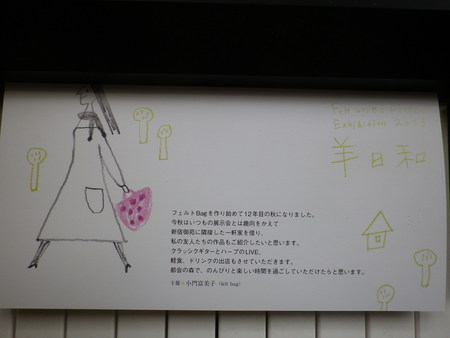 Exhibition 2013
羊日和
フェルトBagを作り始めて12年目の秋になりました。
今秋はいつもの展示会とは趣向をかえて
新宿御苑に隣接した一軒家を借り、
私の友人たちの作品もご紹介したいと思います。
クラシックギターとハープのLIVE、
軽食、ドリンクの出店もさせていただきます。
都会の森で、のんびりと楽しい時間を過ごしていただけたらと思います。
主催 小門富美子（felt bag）